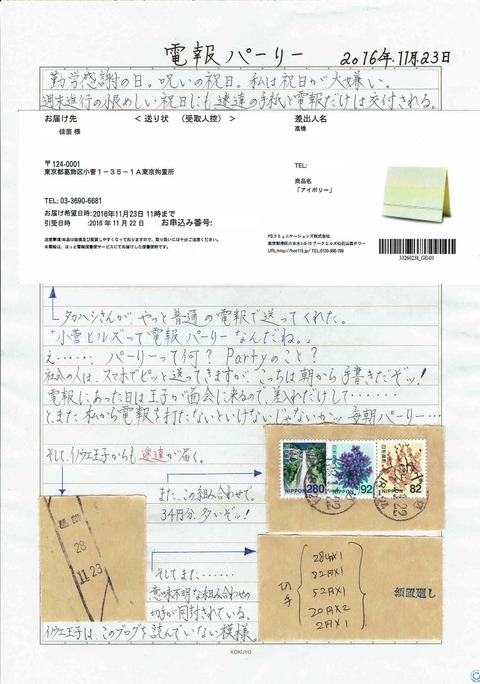 電報パーリー 2016年.11月.23日
勤労感謝の日。呪いの祝日。私は祝日が大嫌い。
週末進行の恨めしい祝日にも速達の手紙と電報だけは交付される。
お届け先 <送り状 (受取人控)> 差出人名
佳苗 様 高橋
〒124-0001
東京都葛飾区小菅1-35-1A東京拘置所
TEL:
商品名
「アイボリー」
TEL: 03-3690-6681
お届け希望日時:2016年11月23日 11時まで
引受日時 :2016年11月22日 お申込み番号:
PSコミュニケーションズ株式会社
33260238_GE-01
タカハシさんが、やっと普通の電報で送ってくれた。
「小菅ヒルズって電報パーリーなんだね。」
え…… パーリーって何? Partyのこと?
社会の人は、スマホでピッと送ってきますが、こっちは朝から手書きだぞッ!
電報にあった日は王子が面会に来るので、差入れだけして……
と、また私から電報を打たないといけないじゃないかッ 毎朝パーリー…
そして、イノウエ王子からも速達が届く。
日本郵便 NIPPON 280
日本郵便 NIPPON 92
日本郵便 NIPPON 82
また、この組み合わせで。
34円分、多いぞッ!
28
11 23
そしてまた……
意味不明な組み合わせの
切手が同封されている。
イノウエ王子は、このブログを読んでいない模様。
切手
82円×1
52円×1
20円×2
2円×1
領置廻し
KOKUYO